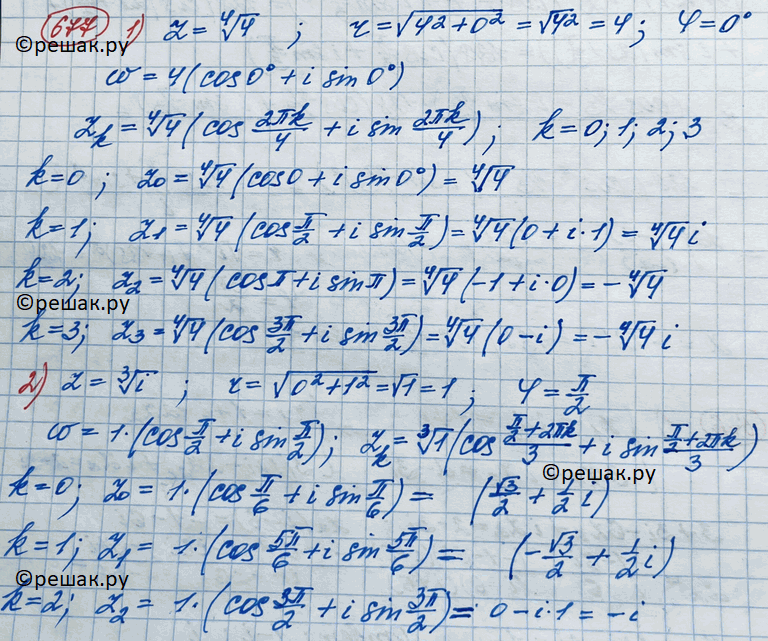 677 1) z = ∜4 ; r = √(4² + 0²) = √4² = 4 ; φ = 0°
©решак.ру
ω = 4 (cos 0° + i sin 0°)
z_k = ∜4 (cos 2πk/4 + i sin 2πk/4) ; k = 0; 1; 2; 3
k = 0 ; z₀ = ∜4 (cos 0 + i sin 0°) = ∜4
k = 1; z₁ = ∜4 (cos π/2 + i sin π/2) = ∜4 (0 + i·1) = ∜4 i
k = 2; z₂ = ∜4 (cos π + i sin π) = ∜4 (-1 + i·0) = -∜4
©решак.ру
k = 3; z₃ = ∜4 (cos 3π/2 + i sin 3π/2) = ∜4 (0 - i) = -∜4 i
2) z = ∛i ; r = √(0² + 1²) = √1 = 1 ; φ = π/2
ω = 1·(cos π/2 + i sin π/2) ; z_k = ∛1 (cos (π/2 + 2πk)/3 + i sin (π/2 + 2πk)/3)
©решак.ру
k = 0; z₀ = 1·(cos π/6 + i sin π/6) = (√3/2 + 1/2 i)
k = 1; z₁ = 1·(cos 5π/6 + i sin 5π/6) = (-√3/2 + 1/2 i)
©решак.ру
k = 2; z₂ = 1·(cos 3π/2 + i sin 3π/2) = 0 - i·1 = -i